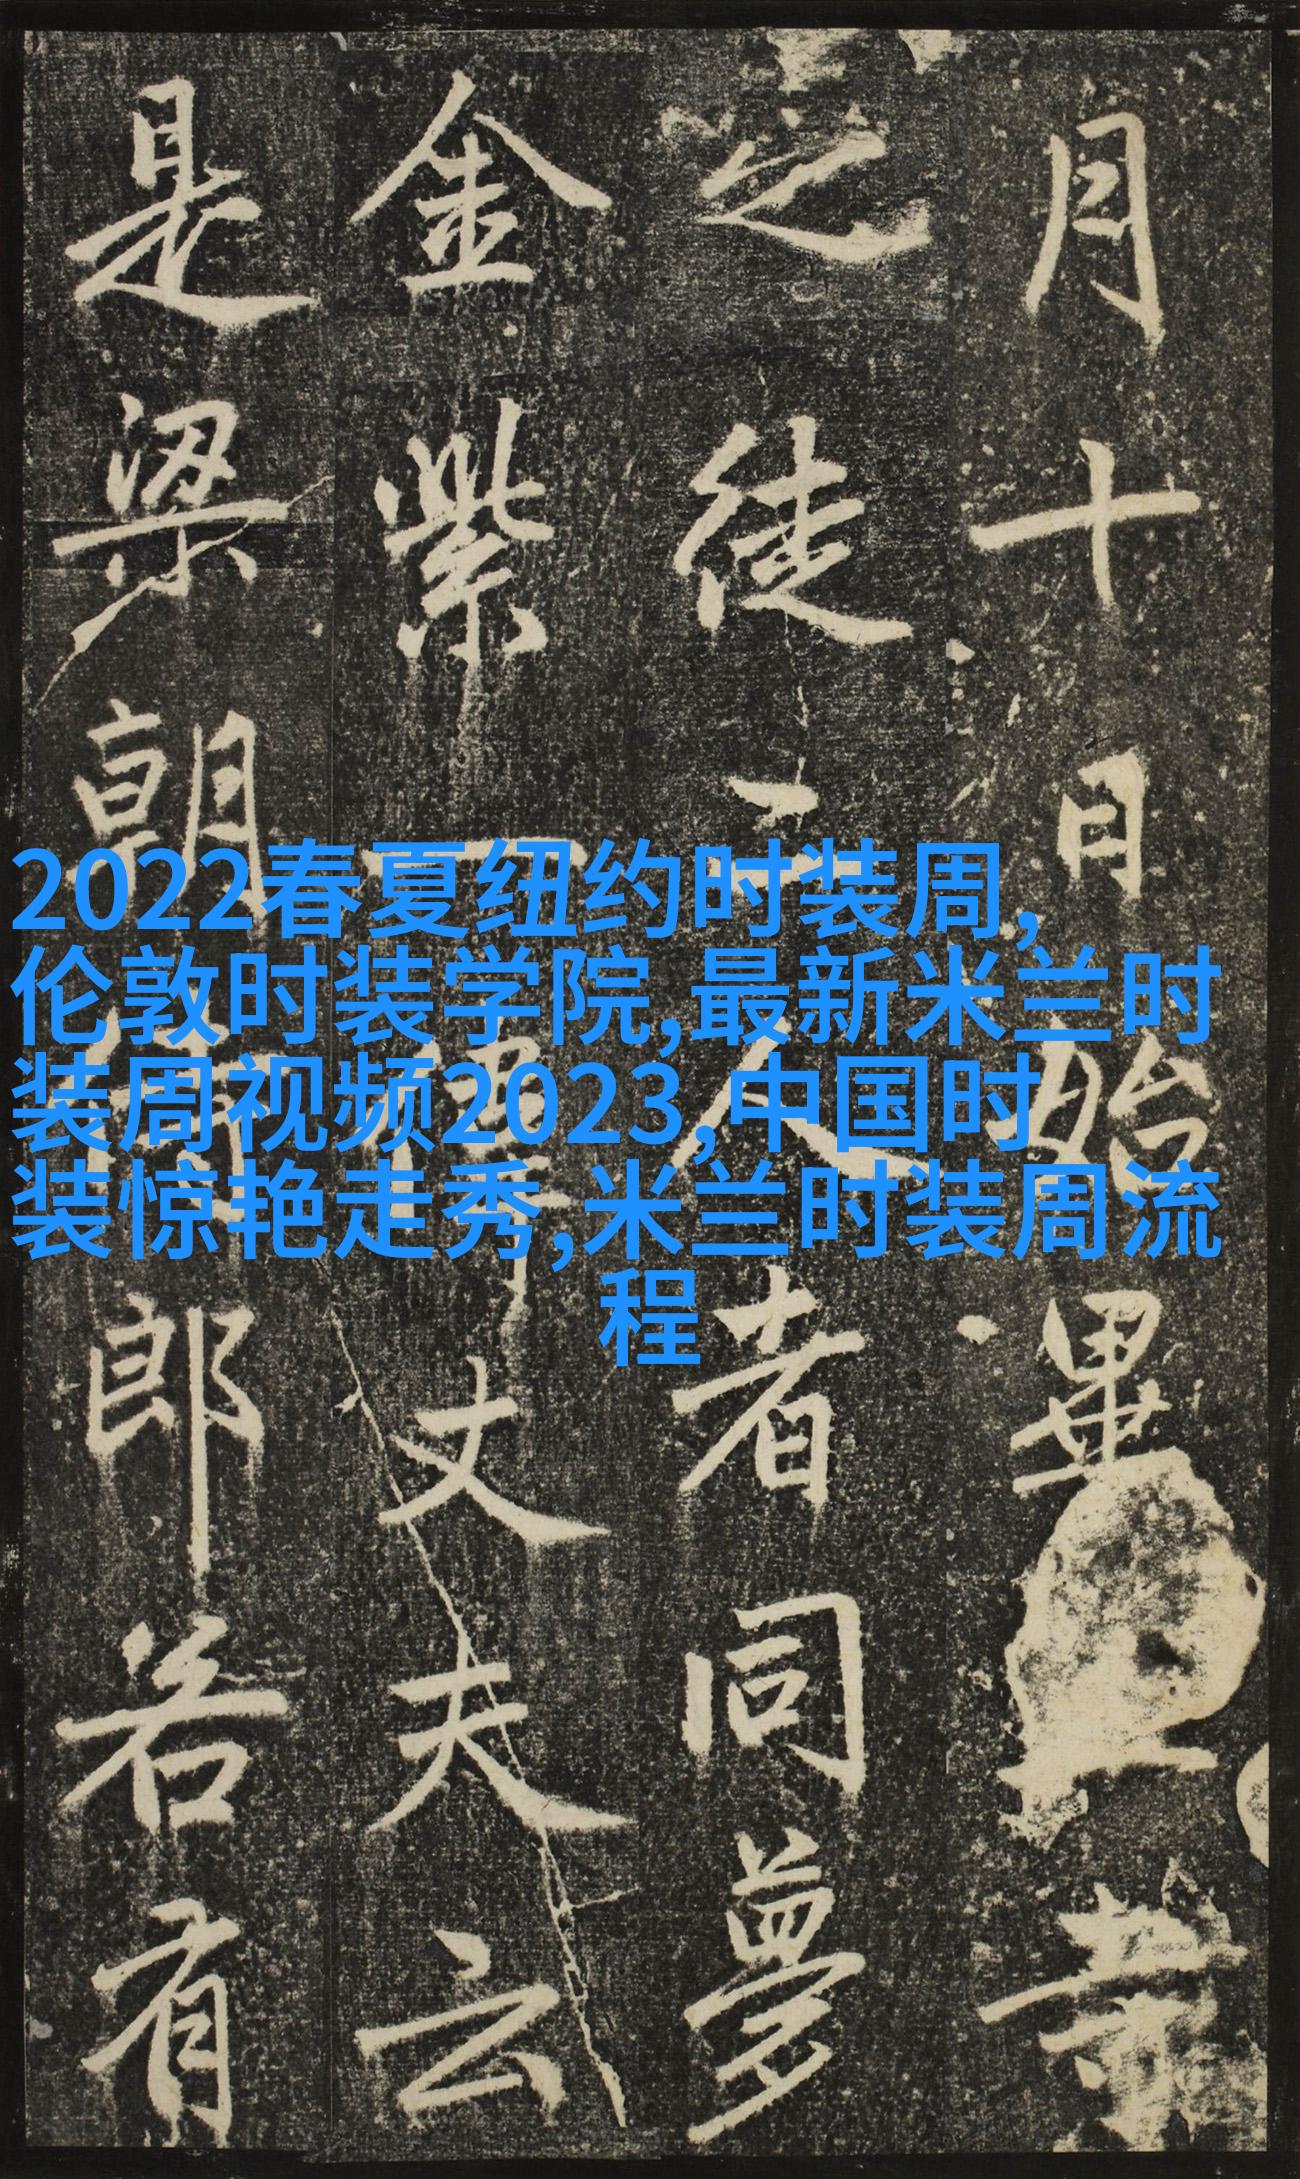 月十日始畢
之徒二人者同夢
金紫一偉丈夫云
是梁朝郎若有
2022春夏纽约时装周,
伦敦时装学院,最新米兰时
装周视频2023,中国时
装惊艳走秀,米兰时装周流
程